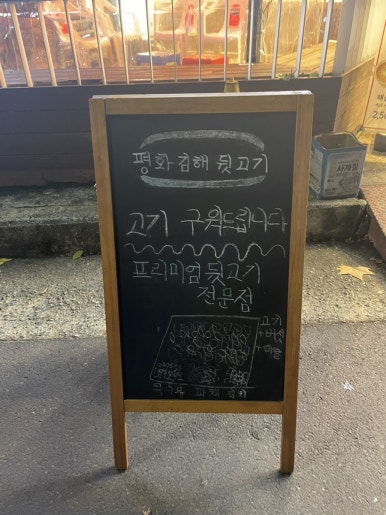 평화김해뒷고기
고기 구워드립니다
프리미엄뒷고기
전문점
고기
+버섯
사계절